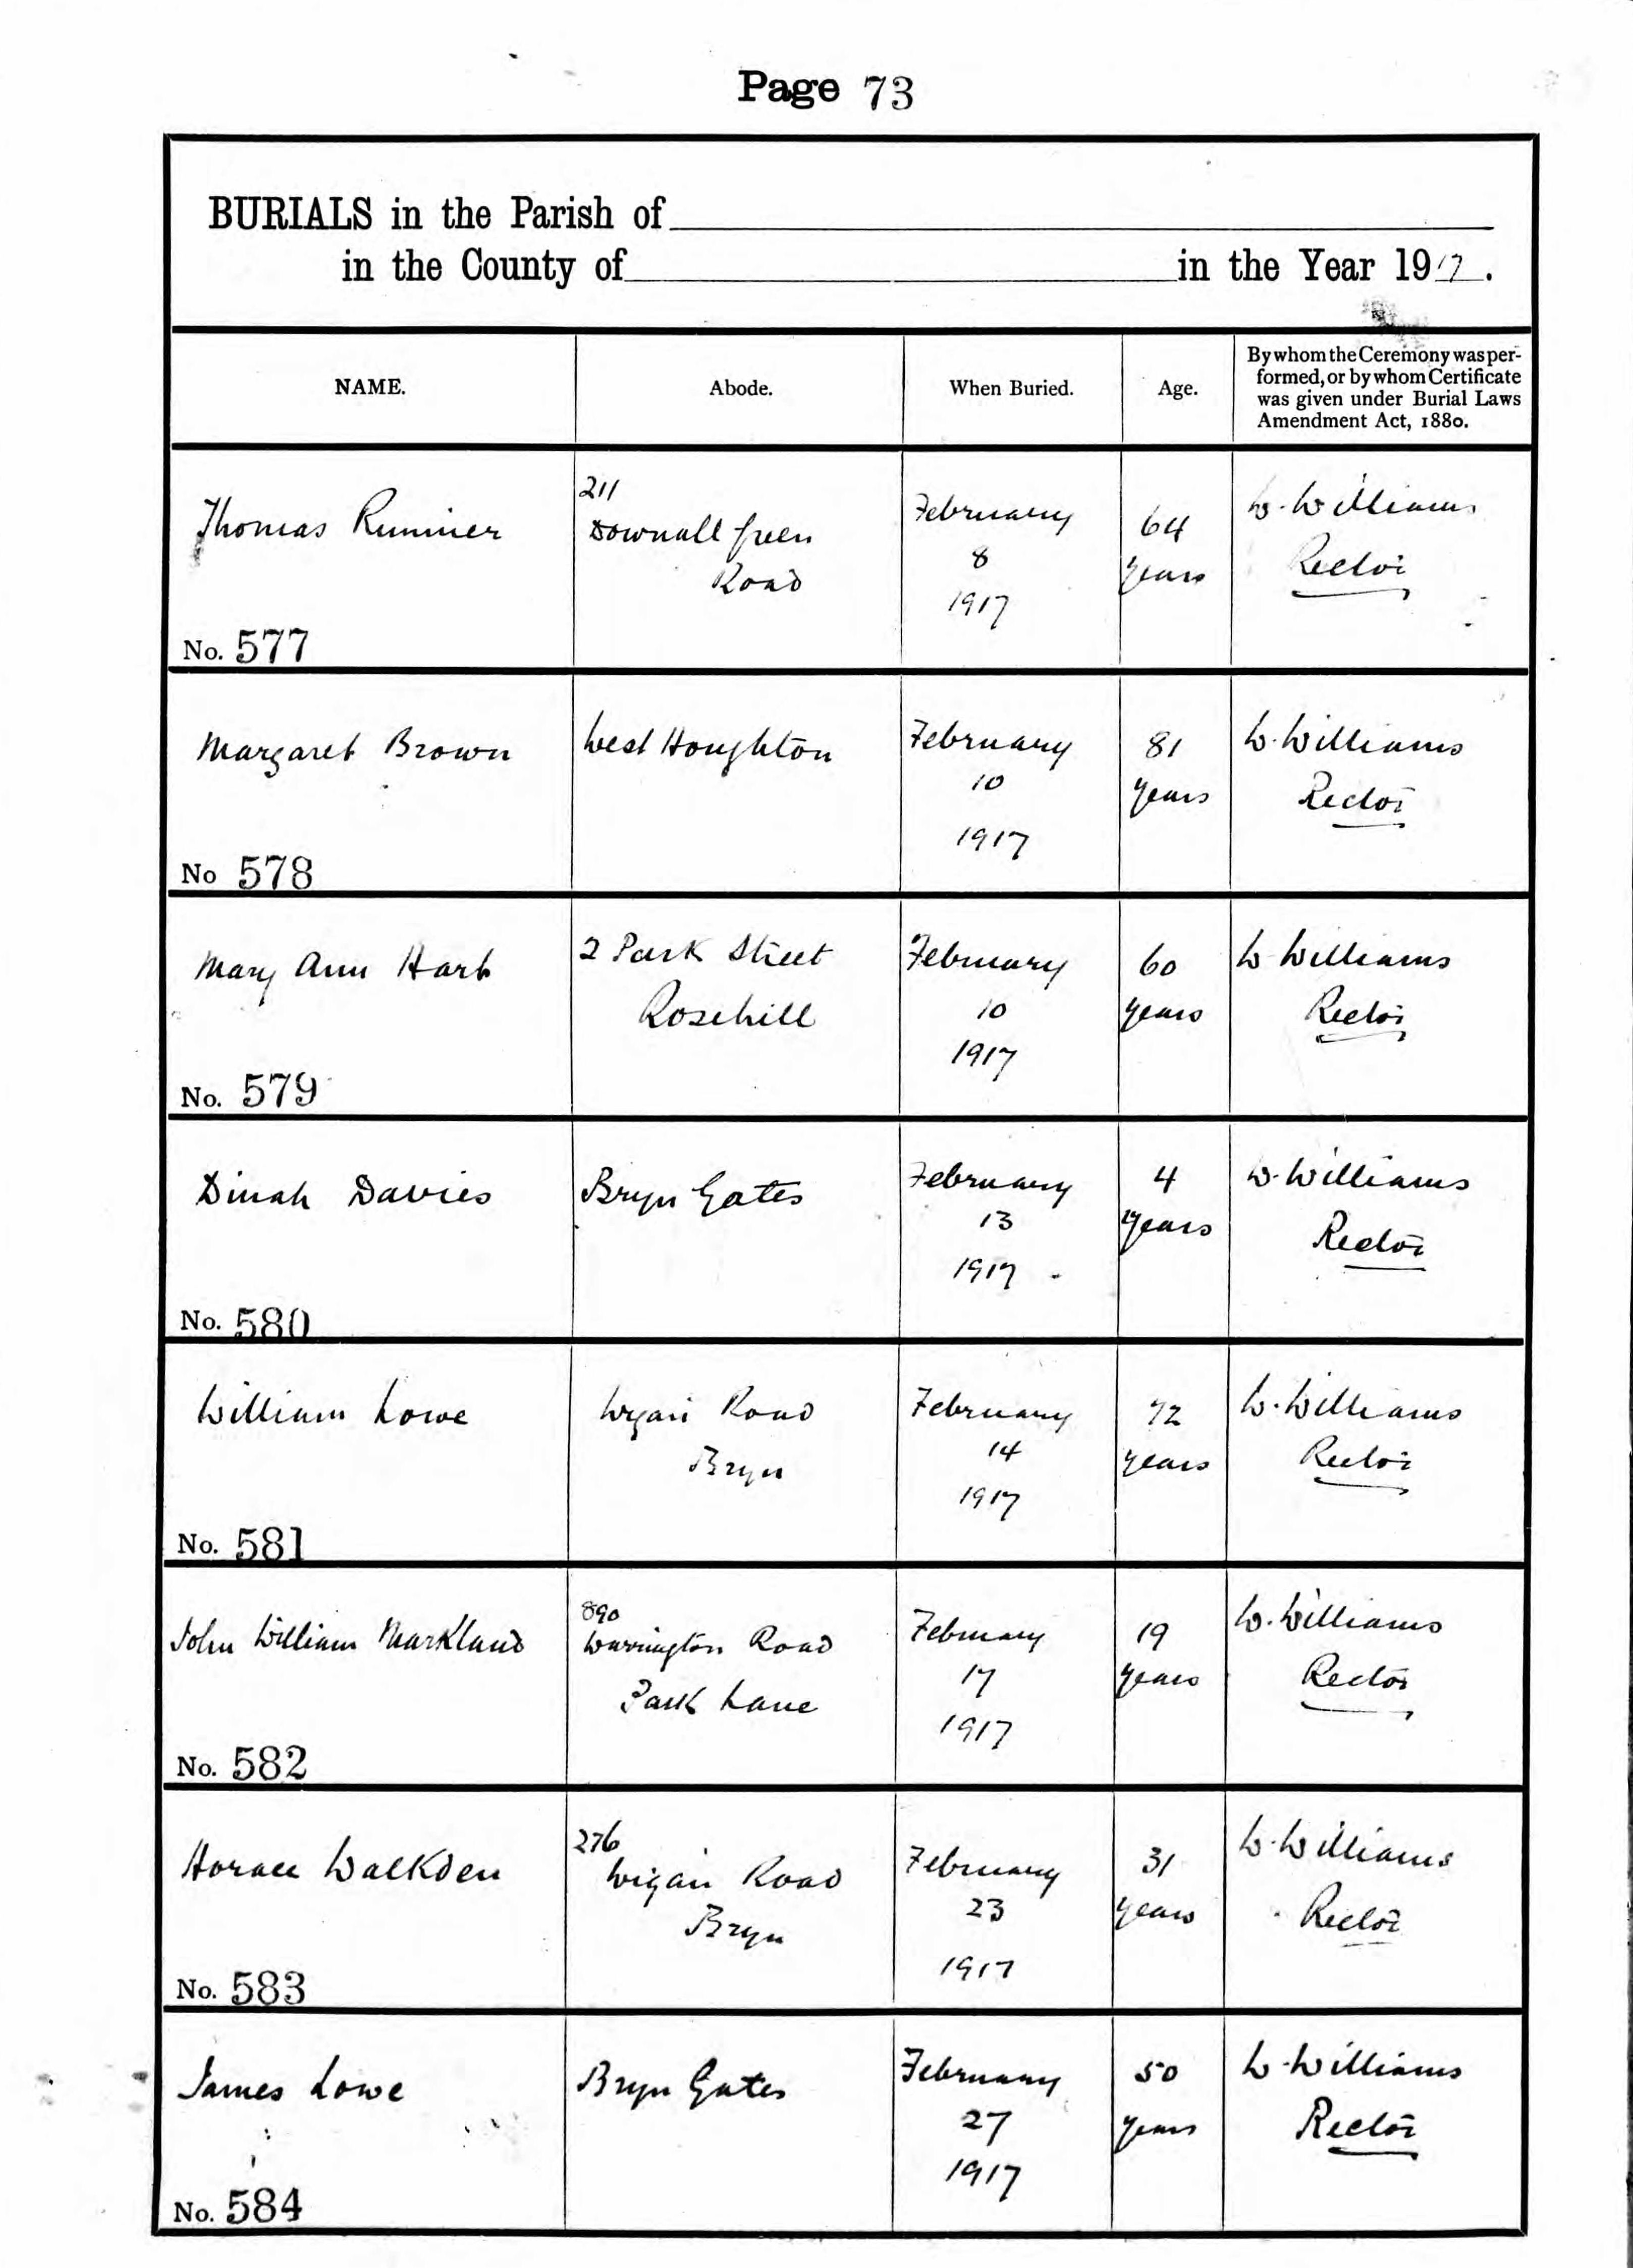 Page 73
BURIALS in the Parish of
in the County of in the Year 1917.
NAME.
Abode.
When Buried.
Age.
By whom the Ceremony was per-
formed, or by whom Certificate
was given under Burial Laws
Amendment Act, 1880.
Thomas Rimmer
No. 577
211
Downall Green
Road
February
8
1917
64
years
W. Williams
Rector
Margaret Brown
No 578
West Houghton
February
10
1917
81
years
W. Williams
Rector
Mary Ann Hart
No. 579
2 Park Street
Rosehill
February
10
1917
60
years
W Williams
Rector
Dinah Davies
No. 580
Bryn Gates
February
13
1917
4
years
W. Williams
Rector
William Lowe
No. 581
Wigan Road
Bryn
February
14
1917
72
years
W. Williams
Rector
John William Markland
No. 582
890
Warrington Road
Park Lane
February
17
1917
19
years
W. Williams
Rector
Horace Walkden
No. 583
276
Wigan Road
Bryn
February
23
1917
31
years
W. Williams
Rector
James Lowe
No. 584
Bryn Gates
February
27
1917
50
years
W. Williams
Rector